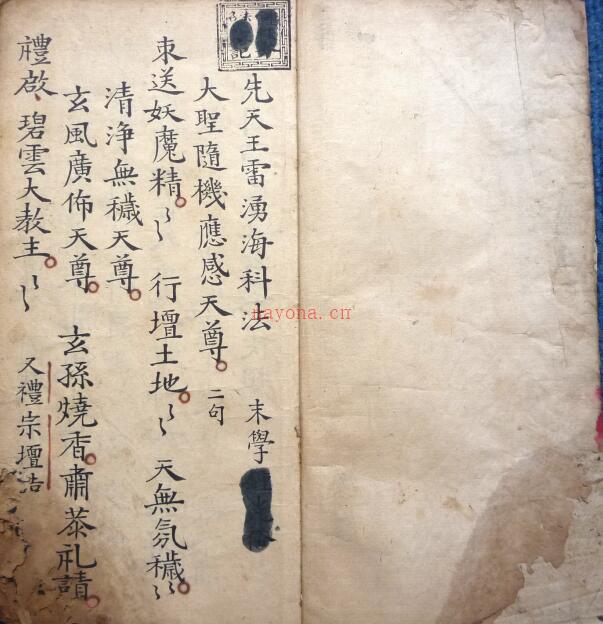 先天王雷湧海科法 末學
大聖隨機應感天尊 二句
束送妖魔精 行壇土地 天無氛穢
清浄無穢天尊
玄風廣佈天尊 玄孫燒香肅恭礼請
禮啟 碧雲大教主 又禮宗壇吉
nayona.cn